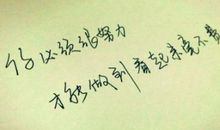 你必须很努力
才能做到看起来毫不费